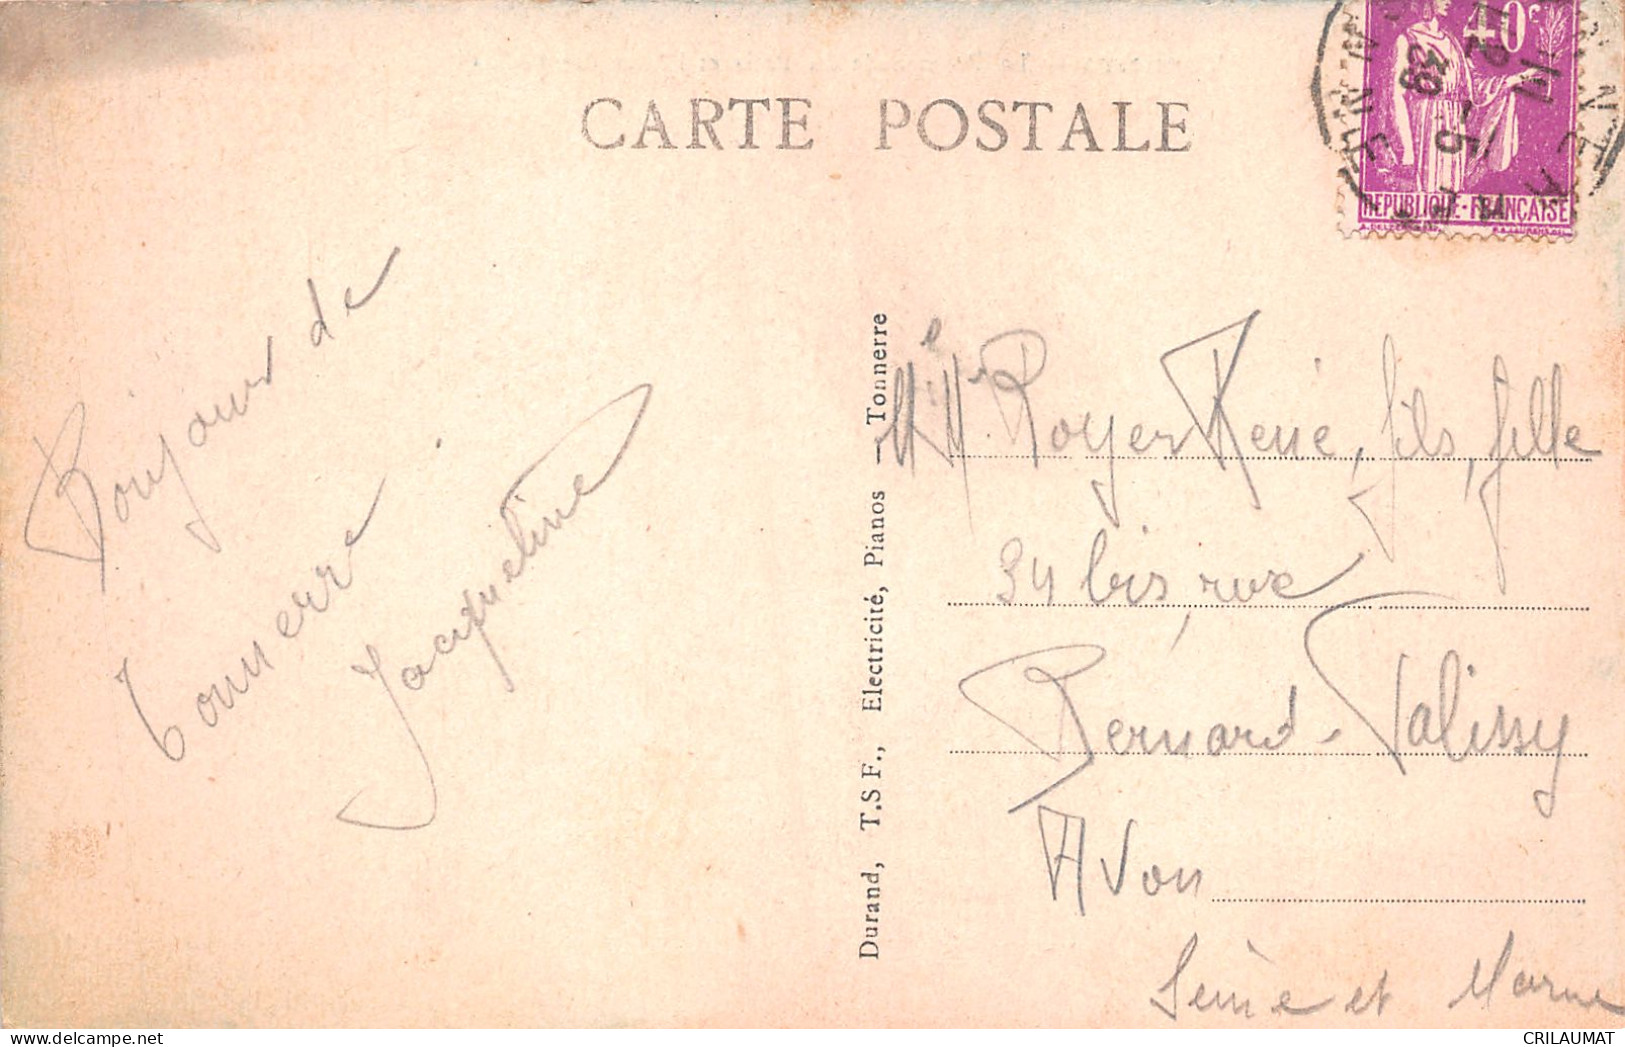 CARTE POSTALE
40c
REPUBLIQUE-FRANÇAISE
-5
39
Bonjour de
Tonnerre
Jacqueline
Durand, T.S F., Electricité, Pianos — Tonnerre
Royer René, fils, fille
34 bis, rue
Bernard-Palissy
Avon
Seine et Marne
CRILAUMAT